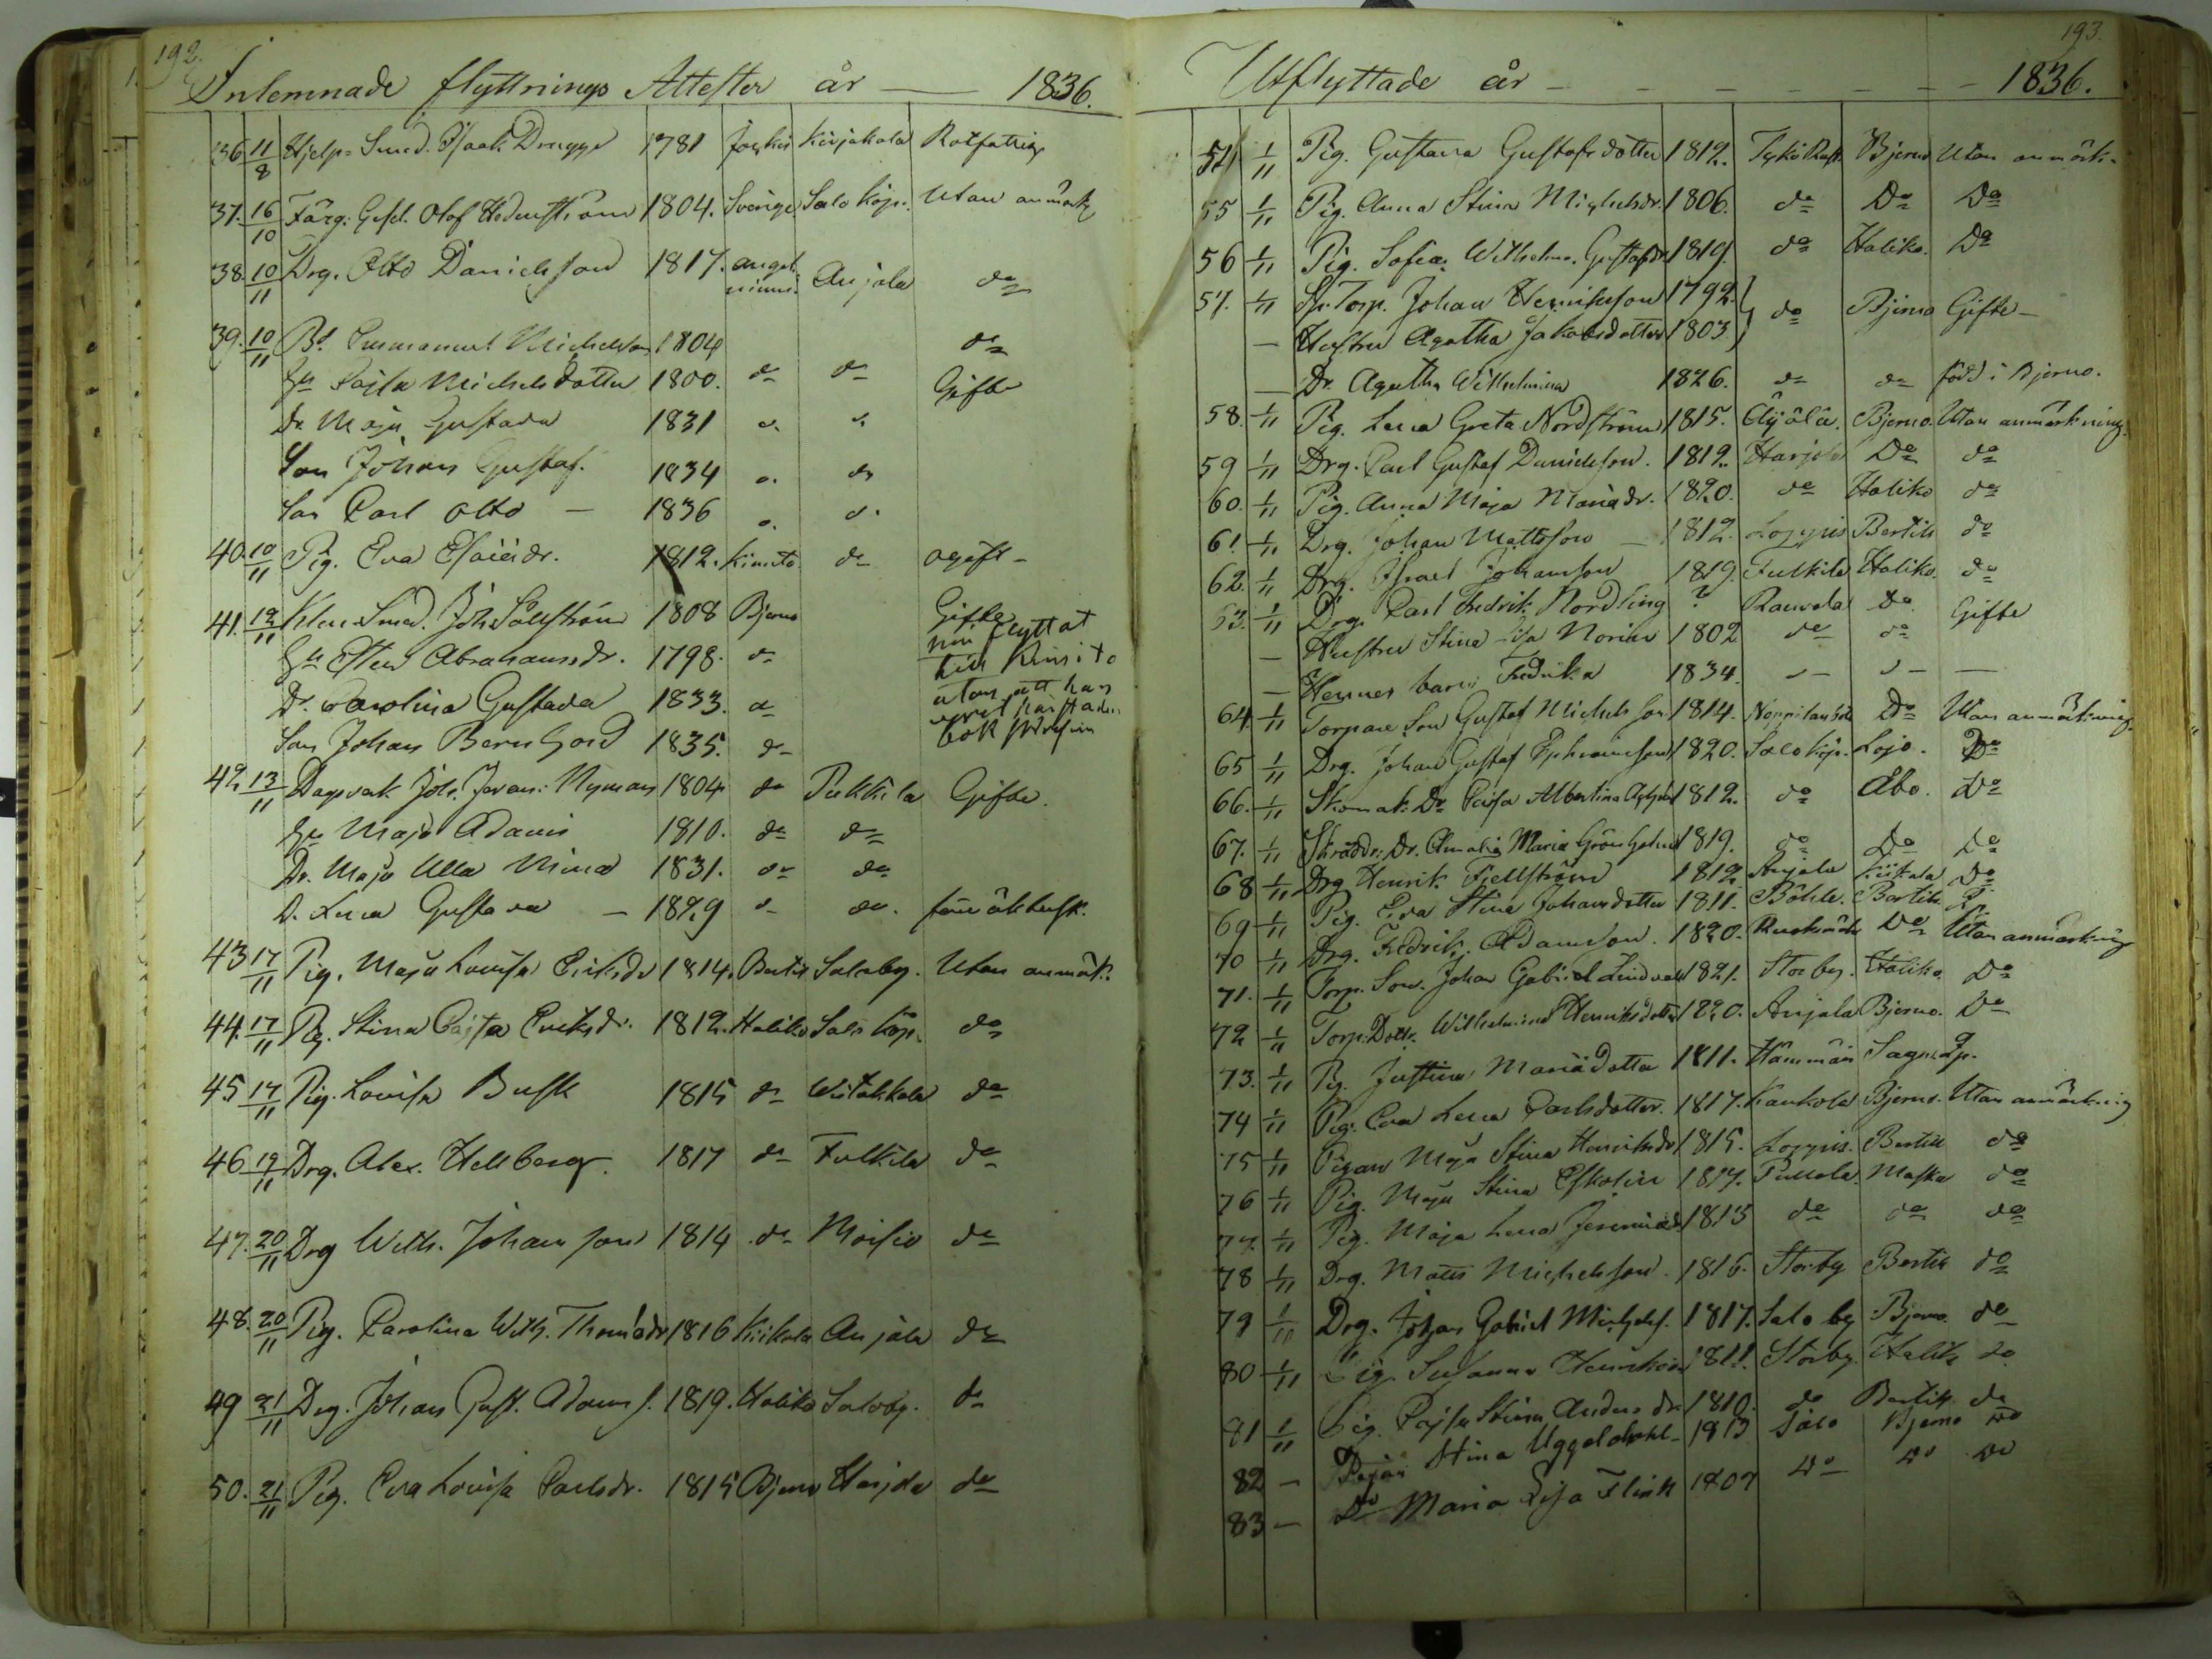 192.
Inlemnade flyttnings Attester år — 1836.
36 11/8 Hjelps Smed. Isaak Drugge 1781 Jockis Kärjakola Rotfattig
37. 16/10 Färg. Gesel. Olof Hedenström 1804. Sverige Salo köp. Utan anmärk
38. 10/11 Drg. Otto Danielsson 1817. Angel- Anjala do
niemi.
39. 10/11 Bd. Emmanuel Michelsson 1804 do
Hu Cajsa Michelsdotter 1800. do do Gifte
Dr. Maja Gustava 1831 d. d.
Son Johan Gustaf. 1834 d. do
Son Carl Otto — 1836 d. d.
40. 10/11 Pig. Eva Esaiædr. 1812. Kimito do ogift —
41. 12/11 Klen Smed. Joh. Sällström 1808 Bjerno Gifte
Hu Abrahamsdr. 1798. do nu flyttat
till Kimito
Dr. Carolina Gustava 1833. do utan att han
Son Johan Bernhard 1835. do
42. 13/11 Dagsverk. Joh. Nyman 1804 do Pukkila Gifte.
Hu Maja Adams 1810. do do
Dr. Maja Ulla Mina 1831. do do
D. Lena Gustava — 1829 d. do.
43 17/11 Pig. Maja Lovisa Eriksdr 1814. Bertil Saloby. Utan anmärk.
44. 17/11 Pig. Stina Cajsa Eriksdr. 1812. Haliko Salo köp. do
45 17/11 Pig. Lovisa Busk 1815 do do
46 19/11 Drg. Alex. Hellberg. 1817 do Fulkila do
47. 20/11 Drg Wilh. Johansson 1814 do Moisio do
48. 20/11 Pig. Carolina Wilh. Thomædr 1816 Kiikala Anjala do
49 21/11 Drg. Johan Gust. Adamss. 1819. Haliko Saloby. do
50. 21/11 Pig. Eva Lovisa Carlsdr. 1815 Bjerno Harjola do
193.
Utflyttade år — — — — — — 1836.
54 1/11 Pig. Gustava Gustafsdotter 1812. Tykö Bjerno Utan anmärk.
55 1/11 Pig. Anna Stina Michelsdr. 1806. do Do Do
56 1/11 Pig. Sofia Wilhelmina Gustafsdr 1819. do Haliko. Do
57. 1/11 Sp. Torp. Johan Henriksson 1792. } do Bjerno Gifte —
— Hustru Agatha Jakobsdotter 1803. }
— Dr. Agatha Wilhelmina 1826. do do född i Bjerno.
58. 1/11 Pig. Lena Greta Nordström 1815. Äyölä. Bjerno. Utan anmärkning.
59 1/11 Drg. Carl Gustaf Danielsson. 1812. Harjola Do do
60. 1/11 Pig. Anna Maja Mariædr. 1820. do Haliko do
61. 1/11 Drg. Johan Mattsson — 1812. Loppis Bertils do
62. 1/11 Drg. Israel Johansson 1819. Fulkila Haliko. do
63. 1/11 Drg. Carl Fredrik Nordling ? Rauvola Do Gifte
— Hustru Stina Lisa Norin 1802 do do
— Hennes barn Fredrika 1834. — — —
64. 1/11 Torpare Son Gustaf Michelsson. 1814. Do Utan anmärkning.
65 1/11 Drg. Johan Gustaf Ephraimsson 1820. Salo köp. Lojo. Do
66. 1/11 Skomak. Dr Cajsa Albertina 1812. do Åbo. Do
67. 1/11 Skräddr. Dr. Amalia Maria Grönholm 1819. do Do Do
68 1/11 Drg Henrik Fjellström 1812 Anjala Kiikala Do
69 1/11 Pig. Eva Stina Johansdotter 1811. Böhle. Bertils
70 1/11 Drg. Fredrik Adamsson. 1820. Do Utan anmärkning
71. 1/11 Torp. Son. Johan Gabriel Lindvall 1821. Storby. Haliko. Do
72 1/11 Torp. Dottr. Wilhelmina Henriksdotter 1820. Anjala Bjerno. Do
73. 1/11 Pig. Justina Mariædotter 1811. Hämmäis Sagu
74 1/11 Pig. Eva Lena Carlsdotter. 1817. Kankola Bjerno. Utan anmärkning
75 1/11 Pigan Maja Stina Henriksdr 1815. Loppis. Bertils do
76 1/11 Pig. Maja Stina Eskolin 1817. Pullola. Masku do
77. 1/11 Pig. Maja Lena Jeremiæd. 1813 do do do
78 1/11 Drg. Matts Michelsson. 1816. Storby Bertils do
79 1/11 Drg. Johan Gabriel Michels. 1817. Salo by Bjerno. do
80 1/11 Pig. Susanna Henriksdr 1811. Storby. Haliko do
81 1/11 Pig. Cajsa Stina Andersdr. 1810. do Bertils do
82 — Pigan Stina 1813 Salo Bjerno Do
83 — Do Maria Lisa Flink 1807 Do Do Do